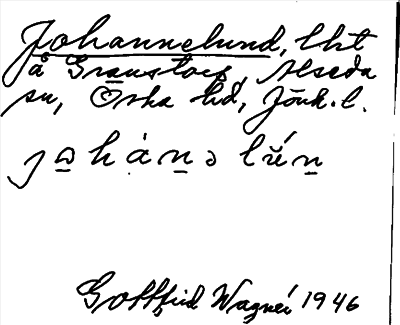 Johannelund, lht
å Granstorp, Alseda
sn, Östra hd, Jönk. l.
Gottfrid Wagner 1946